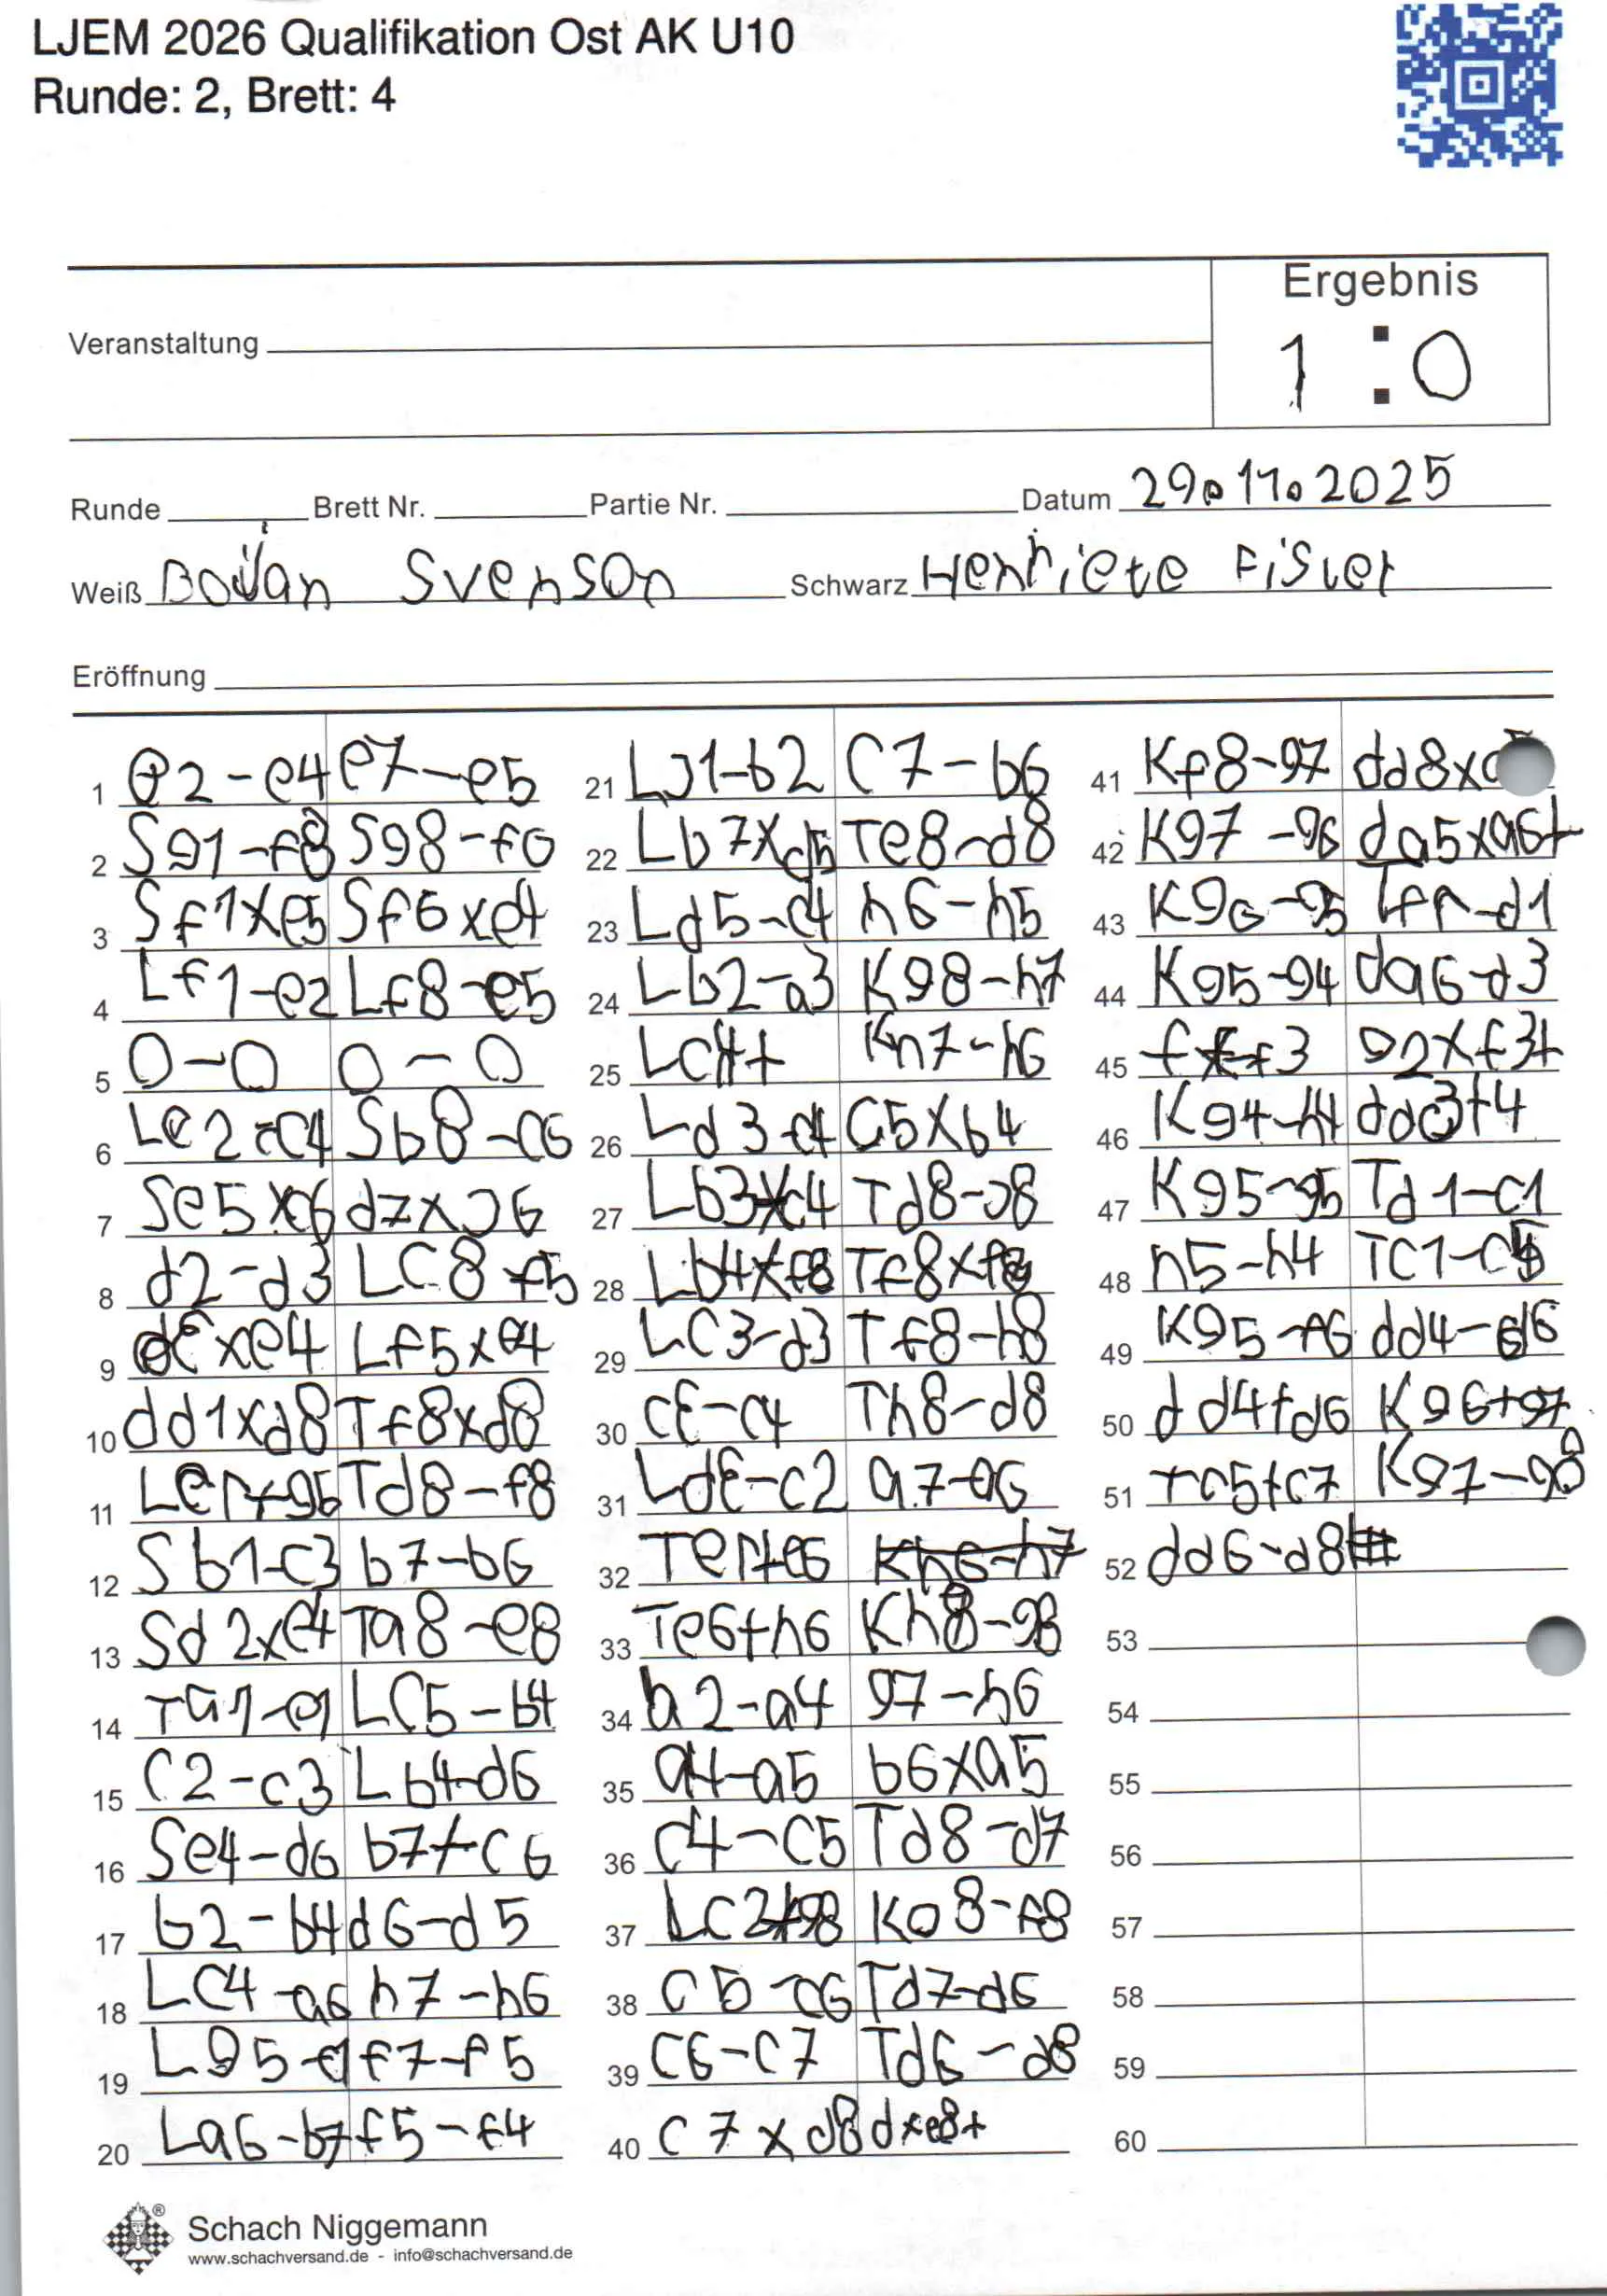 LJEM 2026 Qualifikation Ost AK U10
Runde: 2, Brett: 4
Ergebnis
1 : 0
Veranstaltung
Runde Brett Nr. Partie Nr. Datum 29.11.2025
Weiß Svenson Schwarz Henriete Fisler
Eröffnung
1 e2-e4 e7-e5
2 S91-f3 S98-f6
3 Sf1xe5 Sf6xe4
4 Lf1-e2 Lf8-e5
5 0-0 0-0
6 Le2-c4 Sb8-c6
7 Se5xc6 d7xc6
8 d2-d3 LC8-f5
9 xe4 Lf5xe4
10 dd1xd8 Tf8xd8
11 Td8-f8
12 Sb1-c3 b7-b6
13 Sd2xe4 Ta8-e8
14 Ta1-e1 LC5-b4
15 C2-c3 Lb4-d6
16 Se4-d6 b7+c6
17 b2-b4 d6-d5
18 LC4-a6 h7-h6
19 f7-f5
20 La6-b7 f5-f4
21 C7-b6
22 Lb7xd5 Te8-d8
23 Ld5-c4 h6-h5
24 Lb2-a3 K98-h7
25 Lc4+ Kh7-h6
26 Ld3-c4 C5xb4
27 Lb3xc4
28 Lb4xf8
29 LC3-d3 Tf8-h8
30 Th8-d8
31 a7-a6
32
33 Te6+h6
34 a2-a4 97-h6
35 a4-a5 b6xa5
36 C4-C5 Td8-d7
37
38 C5-c6 Td7-d6
39 C6-C7 Td6-d8
40 C7xd8 dxe8+
41 Kf8-97
42 K97-96 da5xa6+
43 K96-95
44 K95-94 da6-d3
45 92xf3+
46 K94-h4
47 K95-95 Td1-c1
48 h5-h4
49 K95-f6 dd4-d6
50 dd4+d6 K96+97
51 Tc5+c7 K97-98
52 dd6-d8#
53
54
55
56
57
58
59
60
Schach Niggemann
www.schachversand.de - info@schachversand.de